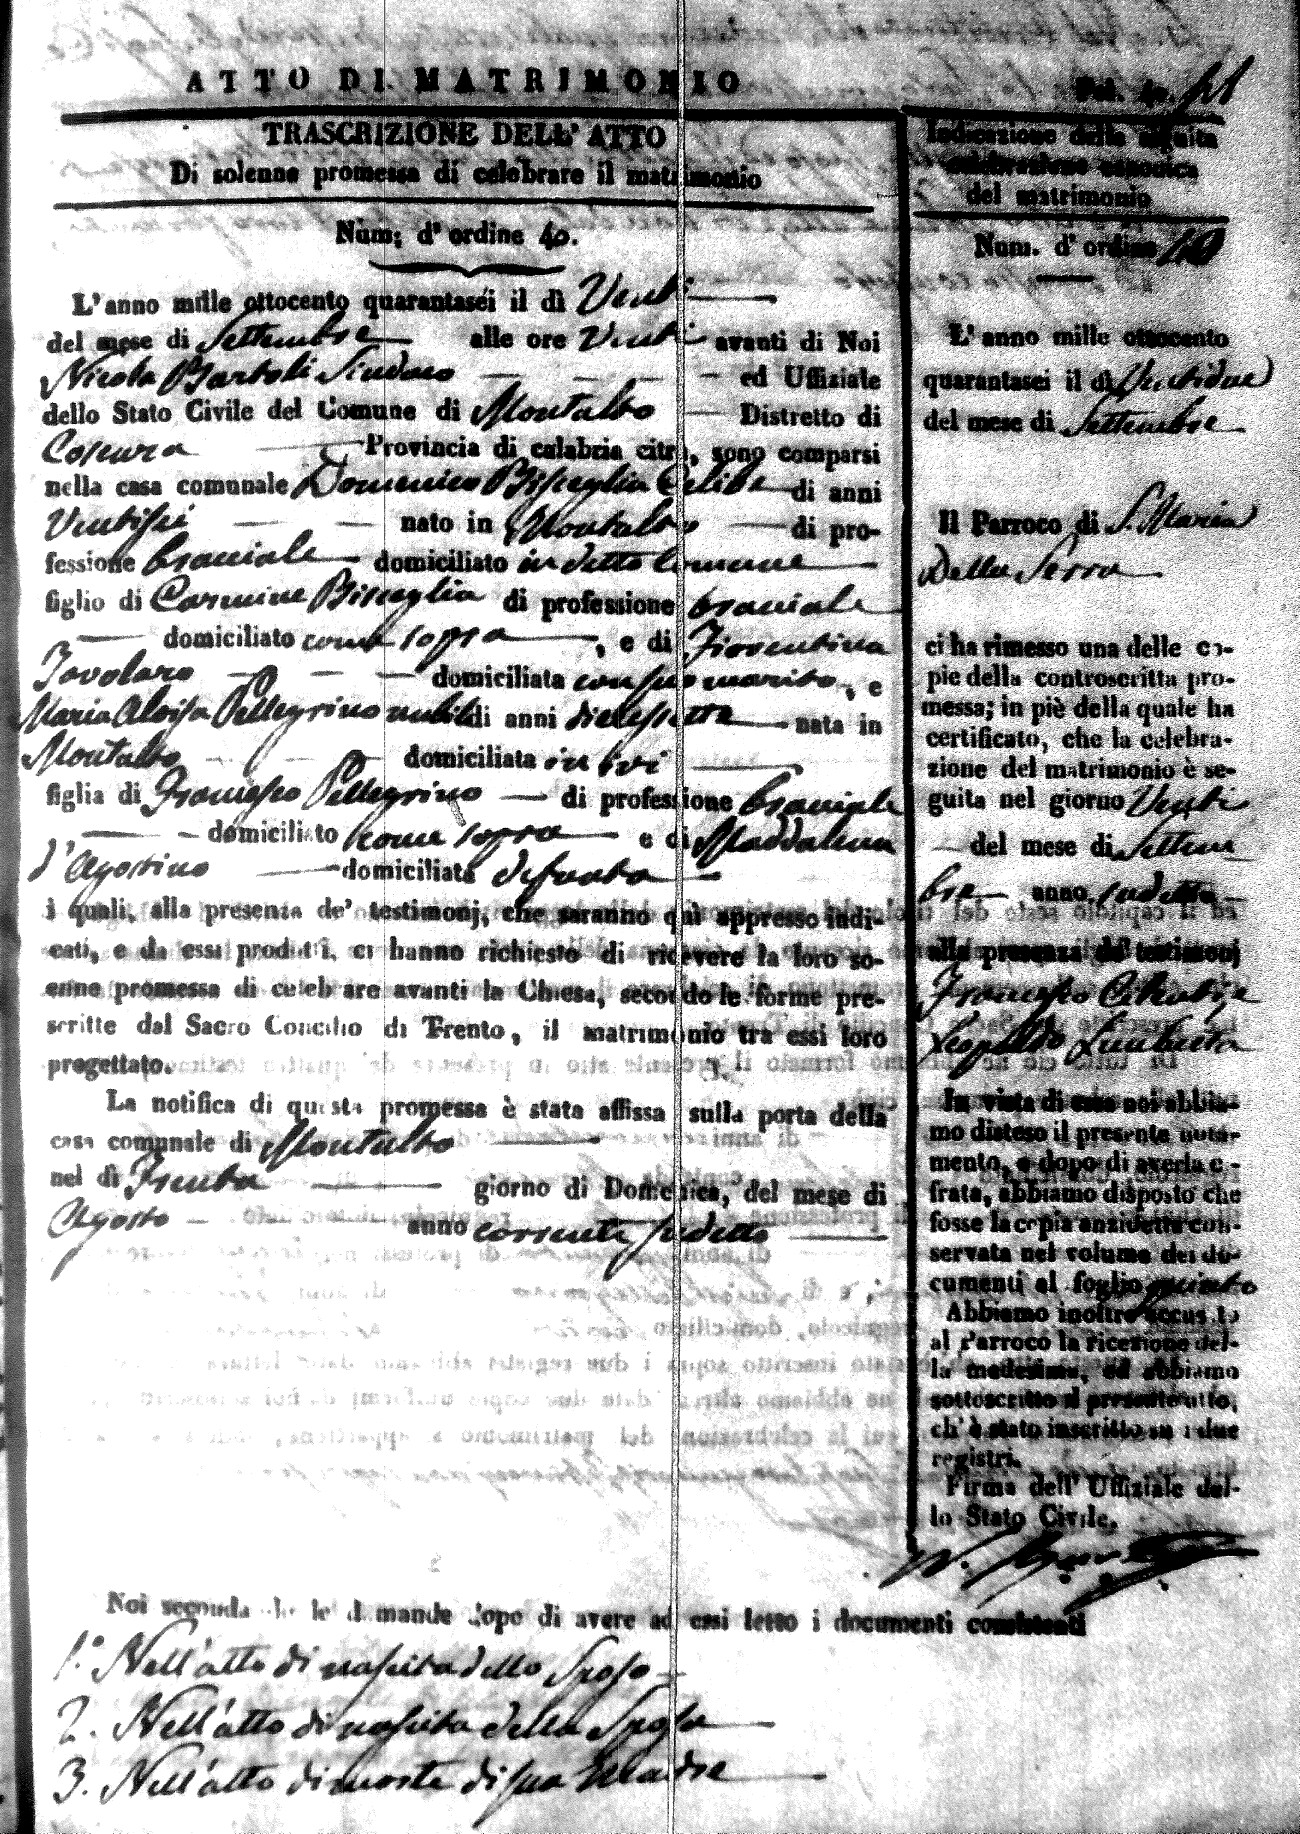 ATTO DI MATRIMONIO
TRASCRIZIONE DELL' ATTO
Di solenne promessa di celebrare il matrimonio
Num: d' ordine 40.
L' anno mille ottocento quarantasei il dì Venti
del mese di Settembre alle ore Venti avanti di Noi
Nicola Bartoli Sindaco ed Uffiziale
dello Stato Civile del Comune di Montalto Distretto di
Cosenza Provincia di calabria citra, sono comparsi
nella casa comunale Domenico Bisceglia Celibe di anni
Ventisei nato in Montalto di pro-
fessione bracciale domiciliato in detto Comune
figlio di Carmine Bisceglia di professione bracciale
domiciliato come sopra, e di Fiorentina
Tavolaro domiciliata con suo marito, e
Maria Aloisa Pellegrino nubile di anni diecessette nata in
Montalto domiciliata in ivi
figlia di Francesco Pellegrino di professione bracciale
domiciliato come sopra e di Maddalena
d'Agostino domiciliata defunta
i quali, alla presenza de' testimonj, che saranno quì appresso indi-
cati, e da essi prodotti, ci hanno richiesto di ricevere la loro so-
enne promessa di celebrare avanti la Chiesa, secondo le forme pre-
scritte dal Sacro Concilio di Trento, il matrimonio tra essi loro
progettato.
La notifica di questa promessa è stata affissa sulla porta della
casa comunale di Montalto
nel dì Trenta giorno di Domenica, del mese di
Agosto anno corrente sudetto
Noi secondando le dimande dopo di avere ad essi letto i documenti consistenti
1.° Nell'atto di nascita dello Sposo
2. Nell'atto di nascita della Sposa
3. Nell'atto di morte di sua Madre
Indicazione della seguita
celebrazione canonica
del matrimonio
Num. d' ordine 40
L' anno mille ottocento
quarantasei il dì Ventidue
del mese di Settembre
Il Parroco di S. Maria
Della Serra
ci ha rimesso una delle co-
pie della controscritta pro-
messa; in piè della quale ha
certificato, che la celebra-
zione del matrimonio è se-
guita nel giorno Venti
del mese di Settem
bre anno sudetto
alla presenza de' testimonj
Francesco
Leopoldo
In vista di essa noi abbia-
mo disteso il presente nota-
mento, e dopo di averla c-
frata, abbiamo disposto che
fosse la copia anzidetta con-
servata nel volume dei do-
cumenti al foglio quinto
Abbiamo inoltre accusato
al Parroco la ricezione del-
la medesima, ed abbiamo
sottoscritto il presente atto,
ch' è stato inscritto su i due
registri.
Firma dell' Uffiziale del-
lo Stato Civile.